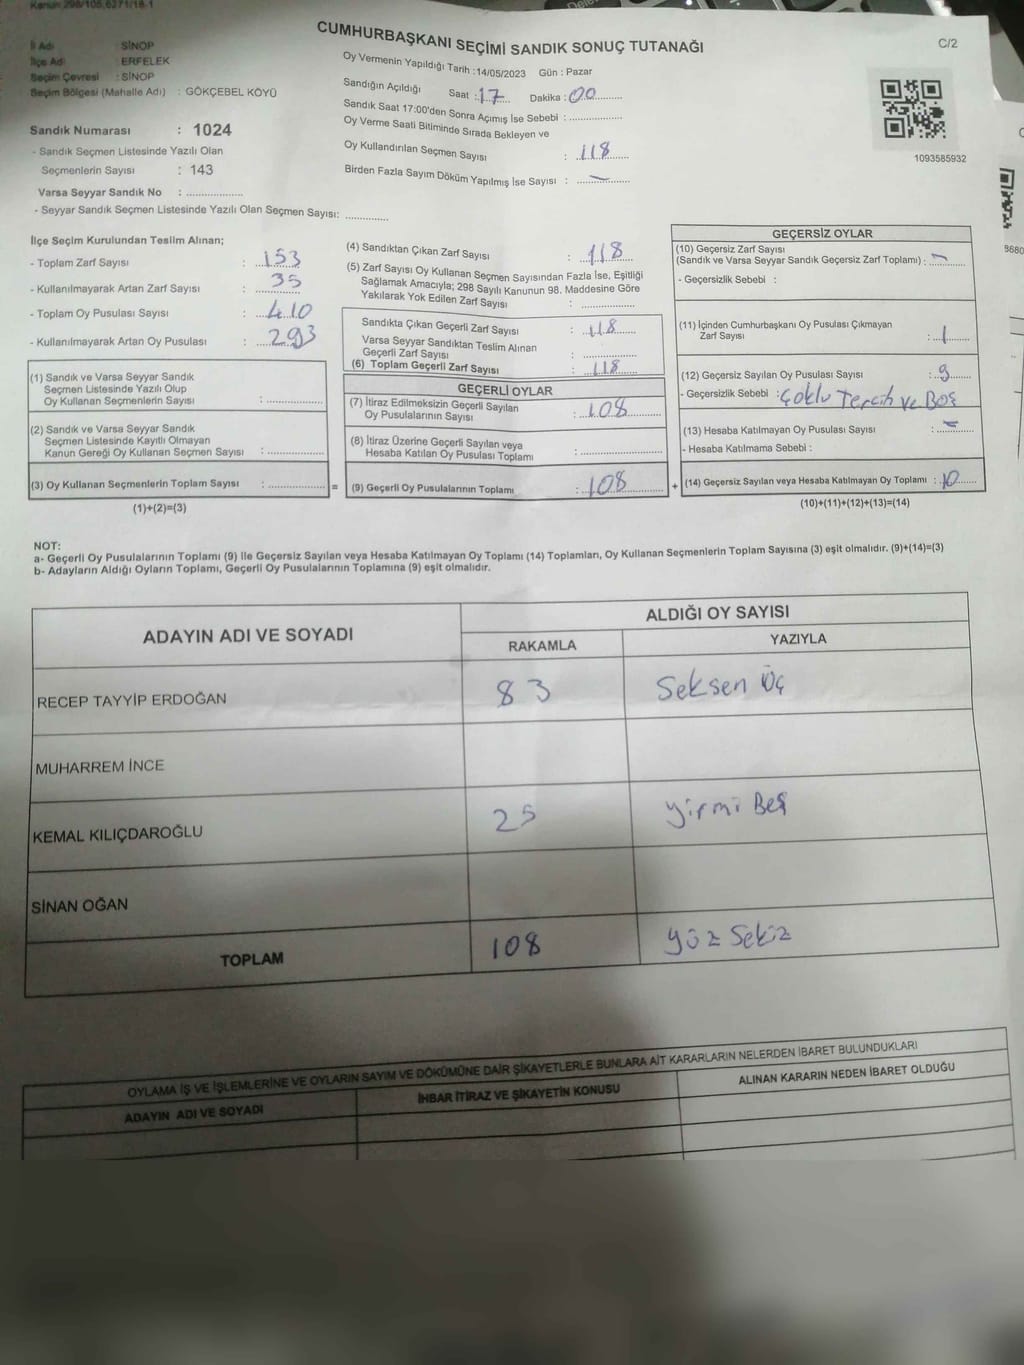 Kanun 298/105,6271/18-1
CUMHURBAŞKANI SEÇİMİ SANDIK SONUÇ TUTANAĞI
C/2
İl Adı : SİNOP
İlçe Adı : ERFELEK
Seçim Çevresi : SİNOP
Seçim Bölgesi (Mahalle Adı) : GÖKÇEBEL KÖYÜ
Sandık Numarası : 1024
- Sandık Seçmen Listesinde Yazılı Olan
Seçmenlerin Sayısı : 143
Varsa Seyyar Sandık No : ..................
- Seyyar Sandık Seçmen Listesinde Yazılı Olan Seçmen Sayısı: .............
Oy Vermenin Yapıldığı Tarih : 14/05/2023 Gün : Pazar
Sandığın Açıldığı Saat : 17 Dakika : 00
Sandık Saat 17:00'den Sonra Açımış İse Sebebi : ..................
Oy Verme Saati Bitiminde Sırada Bekleyen ve
Oy Kullandırılan Seçmen Sayısı : 118
Birden Fazla Sayım Döküm Yapılmış İse Sayısı : —
1093585932
İlçe Seçim Kurulundan Teslim Alınan;
- Toplam Zarf Sayısı : 153
- Kullanılmayarak Artan Zarf Sayısı : 35
- Toplam Oy Pusulası Sayısı : 410
- Kullanılmayarak Artan Oy Pusulası : 293
(1) Sandık ve Varsa Seyyar Sandık
Seçmen Listesinde Yazılı Olup
Oy Kullanan Seçmenlerin Sayısı : ..................
(2) Sandık ve Varsa Seyyar Sandık
Seçmen Listesinde Kayıtlı Olmayan
Kanun Gereği Oy Kullanan Seçmen Sayısı : ..................
(3) Oy Kullanan Seçmenlerin Toplam Sayısı : .................. =
(1)+(2)=(3)
(4) Sandıktan Çıkan Zarf Sayısı : 118
(5) Zarf Sayısı Oy Kullanan Seçmen Sayısından Fazla İse, Eşitliği
Sağlamak Amacıyla; 298 Sayılı Kanunun 98. Maddesine Göre
Yakılarak Yok Edilen Zarf Sayısı : ..................
Sandıkta Çıkan Geçerli Zarf Sayısı : 118
Varsa Seyyar Sandıktan Teslim Alınan
Geçerli Zarf Sayısı : ..................
(6) Toplam Geçerli Zarf Sayısı : 118
GEÇERLİ OYLAR
(7) İtiraz Edilmeksizin Geçerli Sayılan
Oy Pusulalarının Sayısı : 108
(8) İtiraz Üzerine Geçerli Sayılan veya
Hesaba Katılan Oy Pusulası Toplamı : ..................
(9) Geçerli Oy Pusulalarının Toplamı : 108 +
GEÇERSİZ OYLAR
(10) Geçersiz Zarf Sayısı
(Sandık ve Varsa Seyyar Sandık Geçersiz Zarf Toplamı) : —
- Geçersizlik Sebebi :
(11) İçinden Cumhurbaşkanı Oy Pusulası Çıkmayan
Zarf Sayısı : 1
(12) Geçersiz Sayılan Oy Pusulası Sayısı : 9
- Geçersizlik Sebebi : Çoklu Tercih ve Boş
(13) Hesaba Katılmayan Oy Pusulası Sayısı : —
- Hesaba Katılmama Sebebi :
(14) Geçersiz Sayılan veya Hesaba Katılmayan Oy Toplamı : 10
(10)+(11)+(12)+(13)=(14)
NOT:
a- Geçerli Oy Pusulalarının Toplamı (9) ile Geçersiz Sayılan veya Hesaba Katılmayan Oy Toplamı (14) Toplamları, Oy Kullanan Seçmenlerin Toplam Sayısına (3) eşit olmalıdır. (9)+(14)=(3)
b- Adayların Aldığı Oyların Toplamı, Geçerli Oy Pusulalarının Toplamına (9) eşit olmalıdır.
ADAYIN ADI VE SOYADI
ALDIĞI OY SAYISI
RAKAMLA YAZIYLA
RECEP TAYYİP ERDOĞAN 83 Seksen Üç
MUHARREM İNCE
KEMAL KILIÇDAROĞLU 25 Yirmi Beş
SİNAN OĞAN
TOPLAM 108 Yüz Sekiz
OYLAMA İŞ VE İŞLEMLERİNE VE OYLARIN SAYIM VE DÖKÜMÜNE DAİR ŞİKAYETLERLE BUNLARA AİT KARARLARIN NELERDEN İBARET BULUNDUKLARI
ADAYIN ADI VE SOYADI İHBAR İTİRAZ VE ŞİKAYETİN KONUSU ALINAN KARARIN NEDEN İBARET OLDUĞU